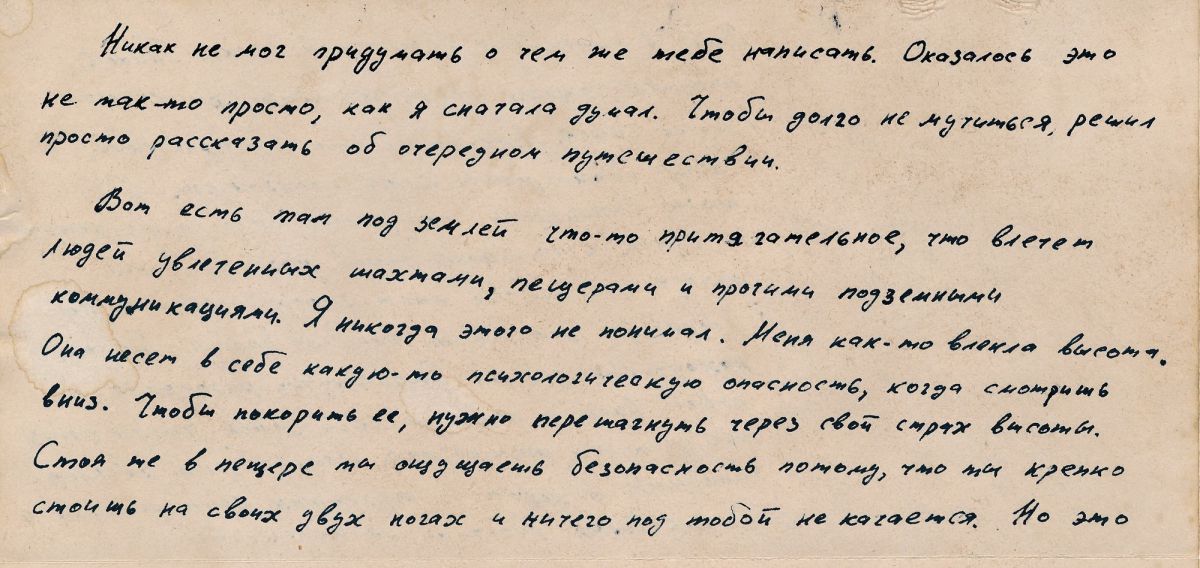 Никак не мог придумать о чем же тебе написать. Оказалось это
не так-то просто, как я сначала думал. Чтобы долго не мучиться, решил
просто рассказать об очередном путешествии.
Вот есть там под землей что-то притягательное, что влечет
людей увлеченных шахтами, пещерами и прочими подземными
коммуникациями. Я никогда этого не понимал. Меня как-то влекла высота.
Она несет в себе какую-то психологическую опасность, когда смотришь
вниз. Чтобы покорить ее, нужно перешагнуть через свой страх высоты.
Стоя же в пещере ты ощущаешь безопасность потому, что ты крепко
стоишь на своих двух ногах и ничего под тобой не качается. Но это